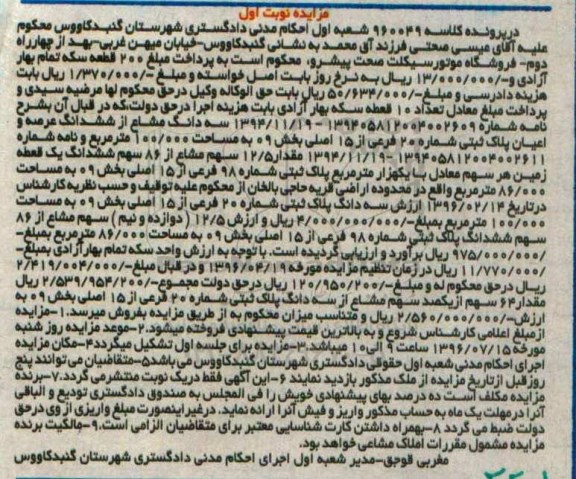 مزایده نوبت اول
درپرونده کلاسه ۹۶۰۰۴۹ شعبه اول احکام مدنی دادگستری شهرستان گنبدکاووس محکوم
علیه آقای عیسی صحتی فرزند آق محمد به نشانی گنبدکاووس-خیابان میهن غربی-بعد از چهارراه
دوم- فروشگاه موتورسیکلت صحت پیشرو، محکوم است به پرداخت مبلغ ۲۰۰ قطعه سکه تمام بهار
آزادی و-/۱۳/۰۰۰/۰۰۰ ریال به نرخ روز بابت اصل خواسته و مبلغ -/۱/۳۷۰/۰۰۰ ریال بابت
هزینه دادرسی و مبلغ-/۵۰/۶۳۴/۰۰۰ ریال بابت حق الوکاله وکیل درحق محکوم لها مرضیه سیدی و
پرداخت مبلغ معادل تعداد ۱۰ قطعه سکه بهار آزادی بابت هزینه اجرا درحق دولت،که در قبال آن بشرح
نامه شماره ۱۳۹۴۰۵۸۱۲۰۰۴۰۰۲۶۰۹ – ۱۳۹۴/۱۱/۱۹ سه دانگ مشاع از ششدانگ عرصه و
اعیان پلاک ثبتی شماره ۲۰ فرعی از ۱۵ اصلی بخش ۰۹ به مساحت ۱۰۰/۰۰۰ مترمربع و نامه شماره
۱۳۹۴۰۵۸۱۲۰۰۴۰۰۲۶۱۱ –۱۳۹۴/۱۱/۱۹ مقدار۱۲/۵ سهم مشاع از ۸۶ سهم ششدانگ یک قطعه
زمین هر سهم معادل با یکهزار مترمربع پلاک ثبتی شماره ۹۸ فرعی از ۱۵ اصلی بخش ۰۹ به مساحت
۸۶/۰۰۰ مترمربع واقع در محدوده اراضی قریه حاجی بالخان از محکوم علیه توقیف و حسب نظریه کارشناس
درتاریخ ۱۳۹۶/۰۲/۱۴ ارزش سه دانگ پلاک ثبتی شماره ۲۰ فرعی از ۱۵ اصلی بخش ۰۹ به مساحت
۱۰۰/۰۰۰ مترمربع بمبلغ-/۴/۰۰۰/۰۰۰/۰۰۰ ریال و ارزش ۱۲/۵ ( دوازده و نیم ) سهم مشاع از ۸۶
سهم ششدانگ پلاک ثبتی شماره ۹۸ فرعی از ۱۵ اصلی بخش ۰۹ به مساحت ۸۶/۰۰۰ مترمربع بمبلغ-
/۹۷۵/۰۰۰/۰۰۰ ریال برآورد و ارزیابی گردیده است. با توجه به ارزش واحد سکه تمام بهارآزادی بمبلغ-
/۱۱/۷۷۰/۰۰۰ ریال در زمان تنظیم مزایده مورخه ۱۳۹۶/۰۴/۱۹ و در قبال مبلغ-/۲/۴۱۹/۰۰۴/۰۰۰
ریال درحق محکوم له و مبلغ-/۱۲۰/۹۵۰/۲۰۰ ریال درحق دولت مجموع-/۲/۵۳۹/۹۵۴/۲۰۰ ریال
مقدار۶۴ سهم ازیکصد سهم مشاع از سه دانگ پلاک ثبتی شماره ۲۰ فرعی از ۱۵ اصلی بخش ۰۹ به
ارزش-/۲/۵۶۰/۰۰۰/۰۰۰ ریال و متناسب میزان محکوم به از طریق مزایده بفروش میرسد.۱-مزایده
ازمبلغ اعلامی کارشناس شروع و به بالاترین قیمت پیشنهادی فروخته میشود.۲-موعد مزایده روز شنبه
مورخه ۱۳۹۶/۰۷/۱۵ ساعت ۹ الی۱۰ میباشد.۳-مزایده برای جلسه اول تشکیل میگردد۴-مکان مزایده
اجرای احکام مدنی شعبه اول حقوقی دادگستری شهرستان گنبدکاووس می باشد۵-متقاضیان می توانند پنج
روزقبل ازتاریخ مزایده از ملک مذکور بازدید نمایند ۶-این آگهی فقط دریک نوبت منتشرمی گردد.۷-برنده
مزایده مکلف است ده درصد بهای پیشنهادی خویش را فی المجلس به صندوق دادگستری تودیع و الباقی
آنرا درمهلت یک ماه به حساب مذکور واریز و فیش آنرا ارائه نماید. درغیراینصورت مبلغ واریزی از وی درحق
دولت ضبط می گردد ۸-بهمراه داشتن کارت شناسایی معتبر برای متقاضیان الزامی است.۹-مالکیت برنده
مزایده مشمول مقررات املاک مشاعی خواهد بود.
مغربی قوجق-مدیر شعبه اول اجرای احکام مدنی دادگستری شهرستان گنبدکاووس